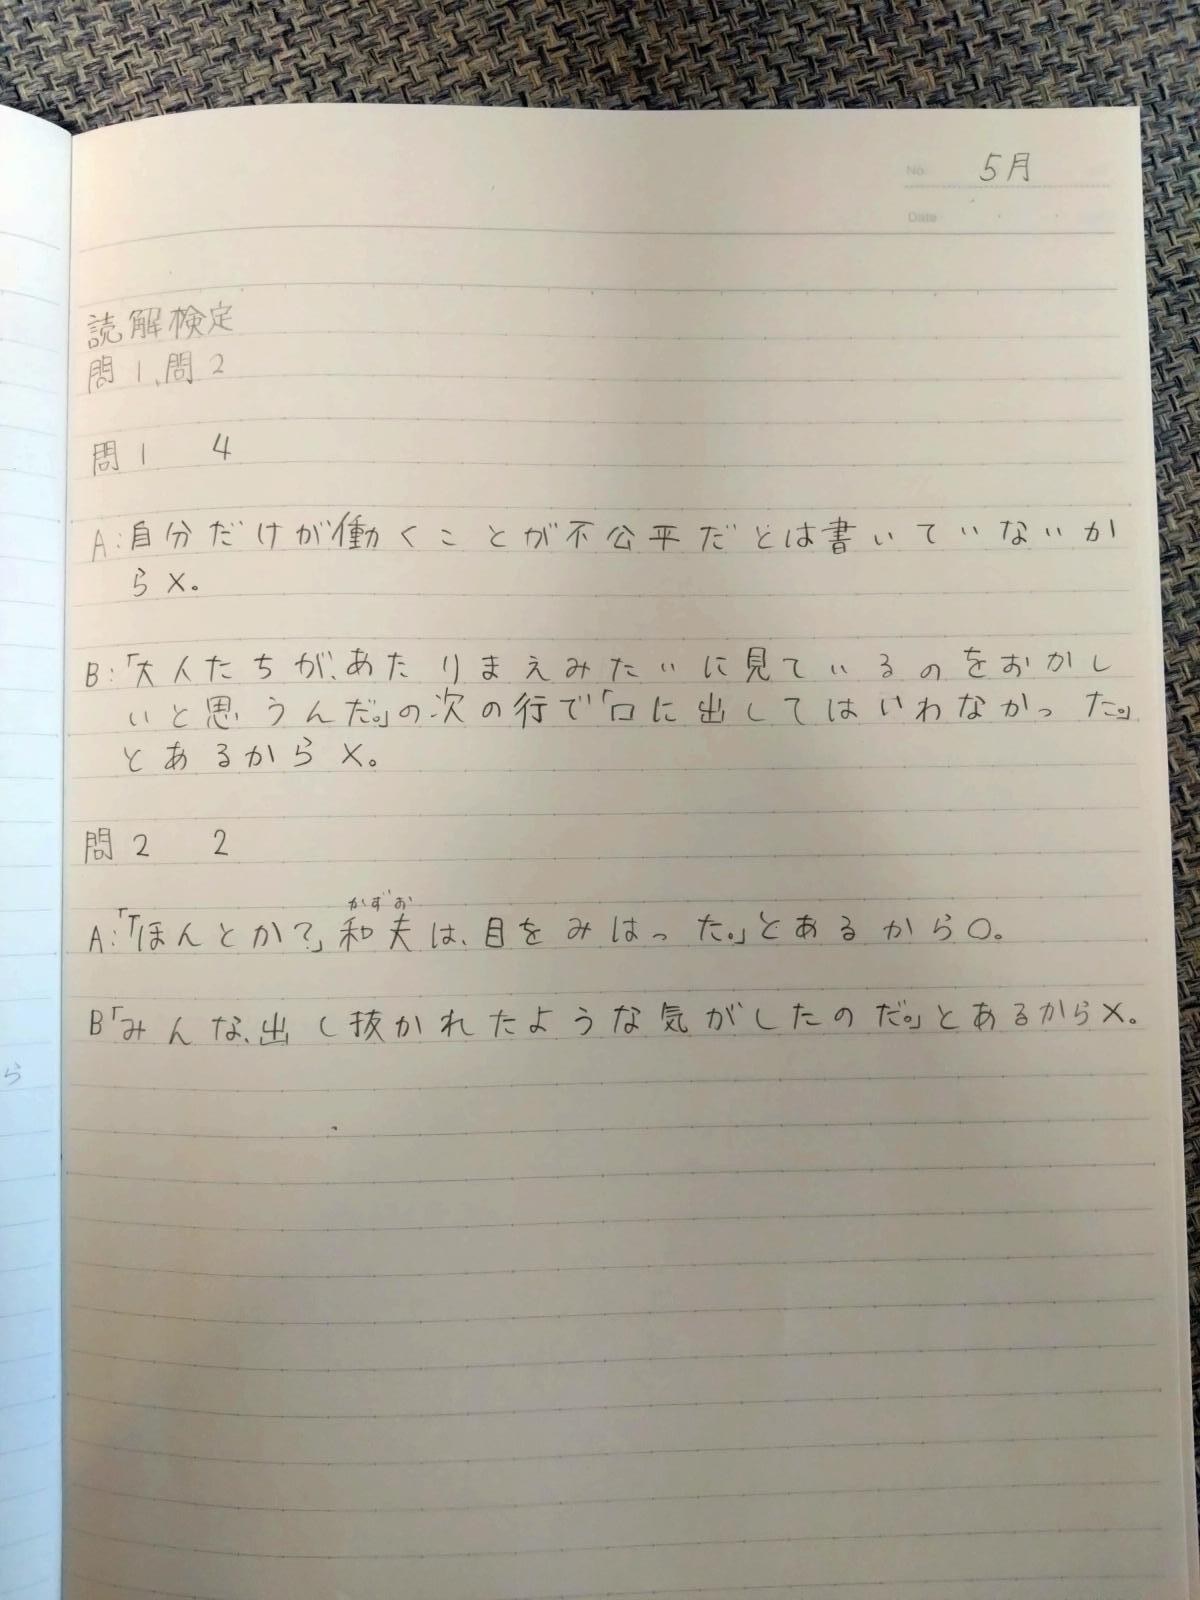 No. 5月
Date
読解検定
問1、問2
問1 4
A:自分だけが働くことが不公平だとは書いていないか
ら×。
B:「大人たちが、あたりまえみたいに見ているのをおかし
いと思うんだ。」の次の行で「口に出してはいわなかった。」
とあるから×。
問2 2
かずお
A:「「ほんとか?」和夫は、目をみはった。」とあるから○。
B「みんな、出し抜かれたような気がしたのだ。」とあるから×。
ら